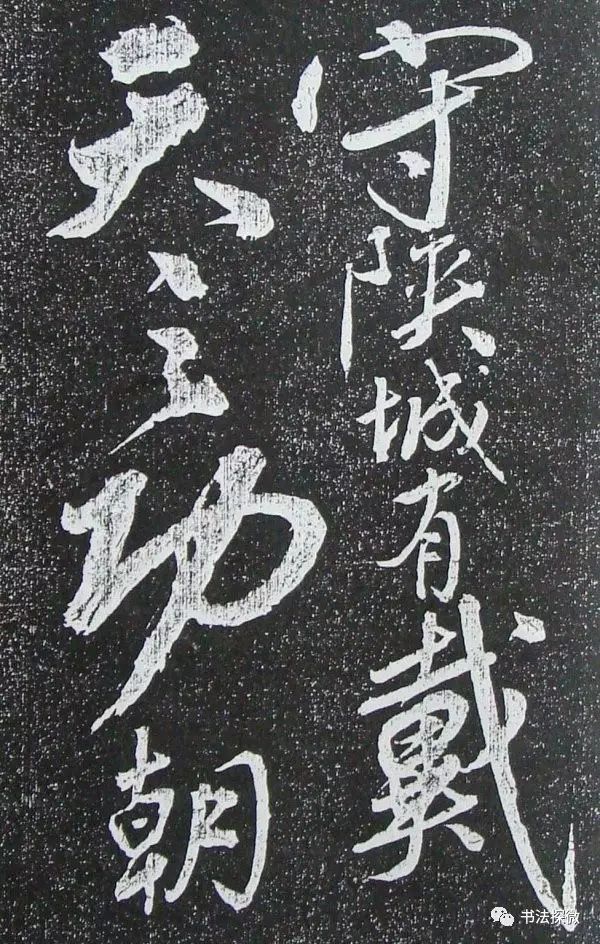 守陝城有戴
天之功朝
书法探微